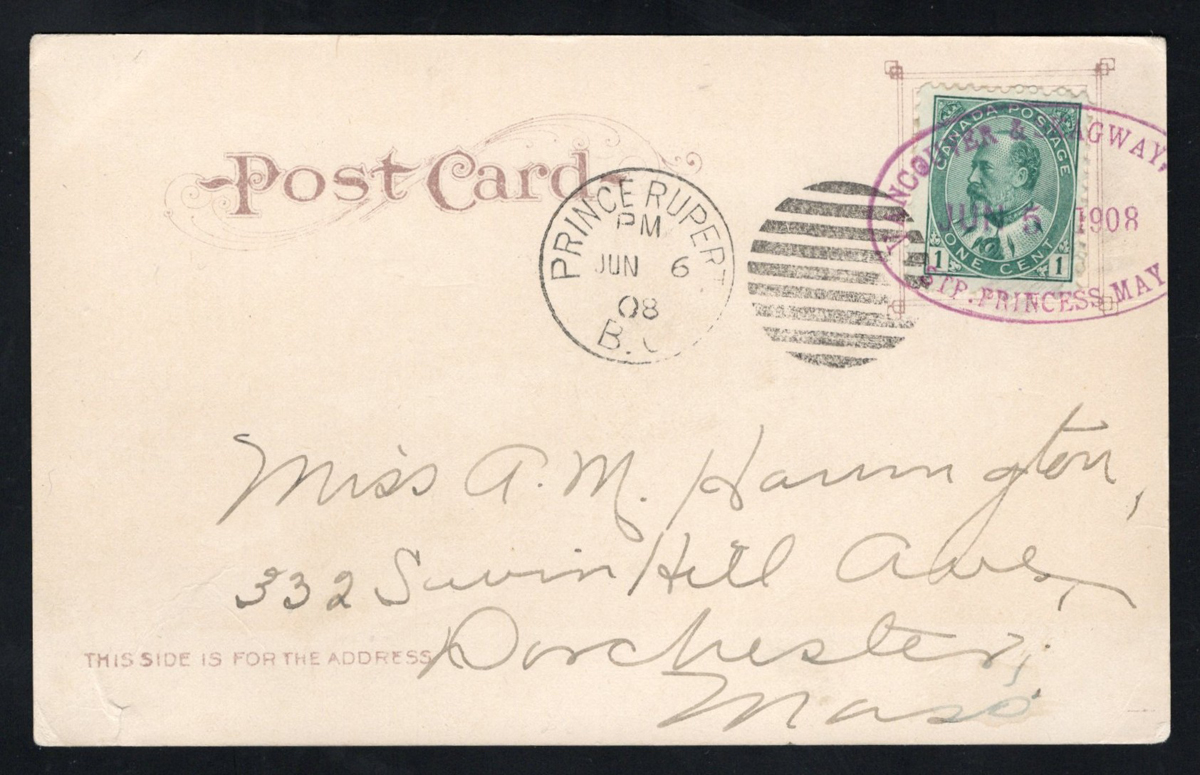 Post Card
PRINCE RUPERT
PM
JUN 6
08
B.C
VANCOUVER & SKAGWAY.
JUN 5 1908
STP. PRINCESS MAY
CANADA POSTAGE
1 ONE CENT 1
Miss A. M. Harrington,
332 Savin Hill Ave,
Dorchester,
Mass
THIS SIDE IS FOR THE ADDRESS